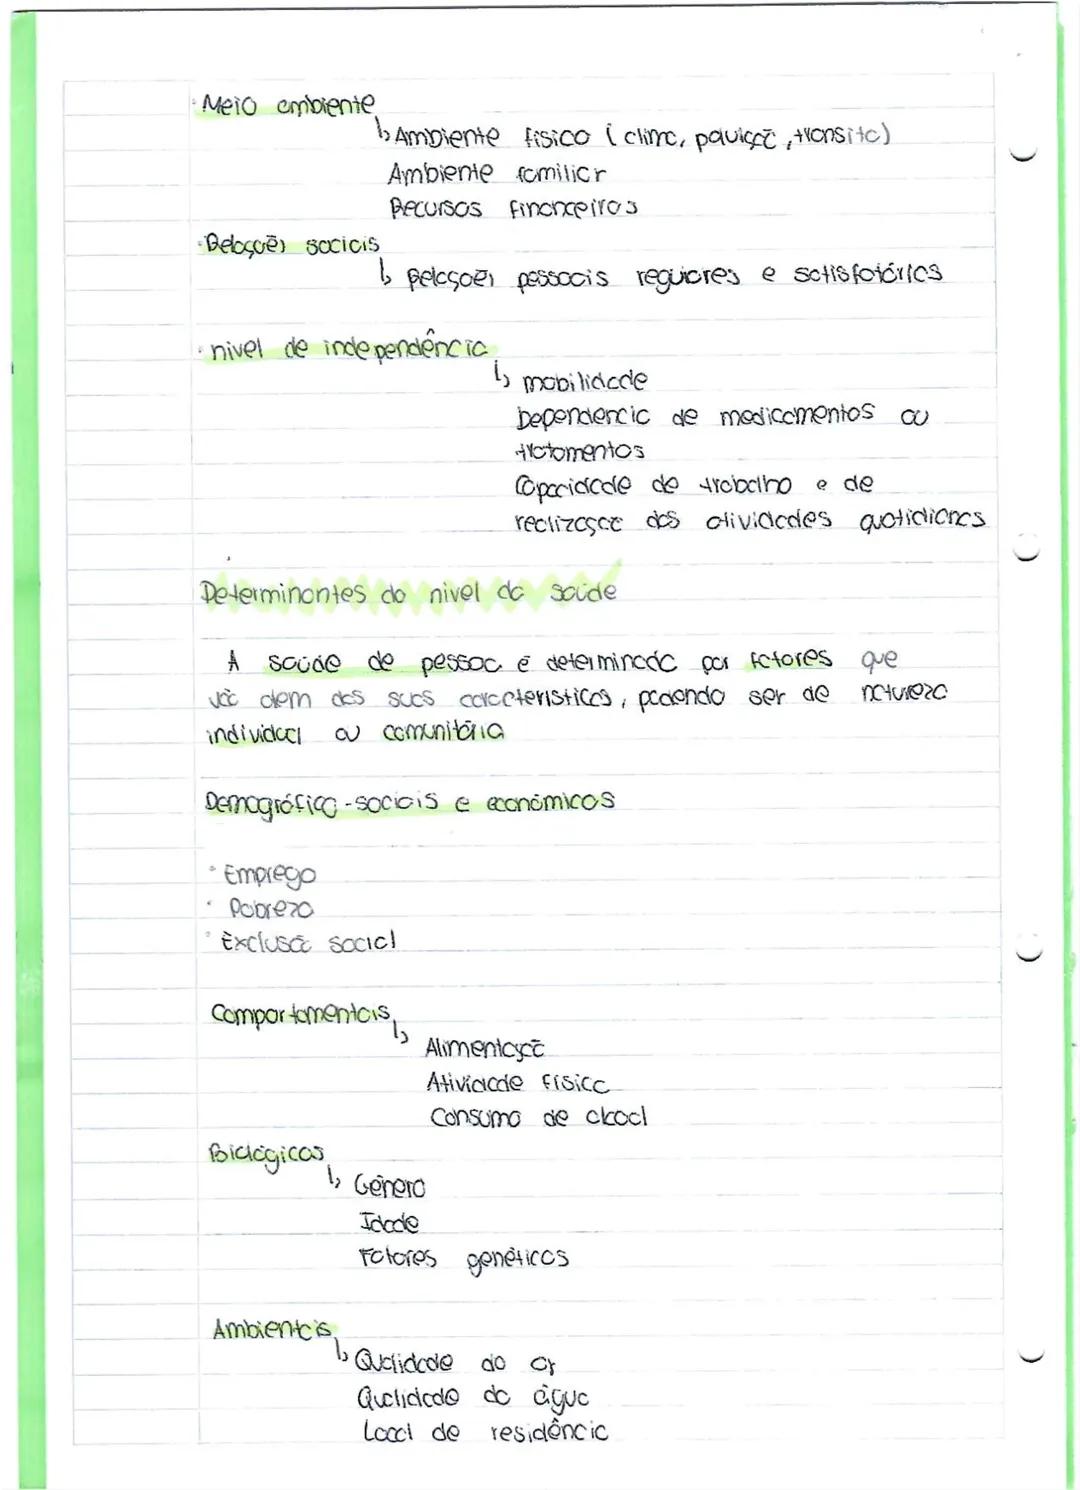 · Meio ambiente
↳ Ambiente fisico ( clima, poluição, transito)
Ambiente familiar
Recursos financeiros
· Relações sociais
↳ Relações pessoais regulares e satisfatórias
· nivel de independência
↳ mobilidade
Dependencia de medicamentos ou
tratamentos
Capacidade de trabalho e de
realização das atividades quotidianas
Determinantes do nivel da saúde
A saúde de pessoa é determinada por fatores que
vão alem das suas caracteristicas, podendo ser de natureza
individual ou comunitária
Demográfico-sociais e económicos
· Emprego
· Pobreza
· Exclusão social
Comportamentais
↳ Alimentação
Atividade fisica
Consumo de alcool
Biológicos
↳ Género
Idade
Fatores genéticos
Ambientais
↳ Qualidade do ar
Qualidade da água
Local de residência